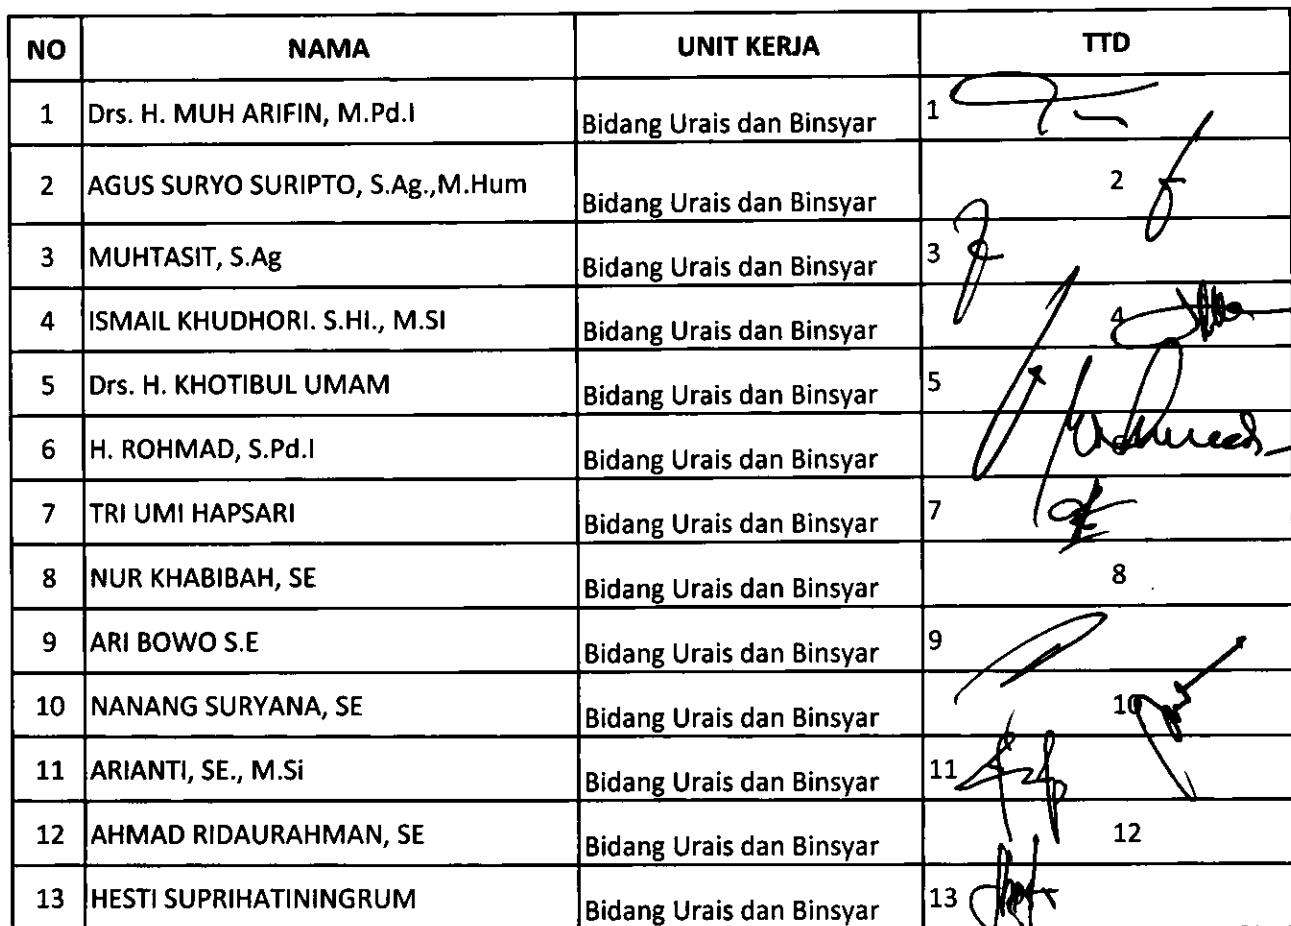 NO NAMA UNIT KERJA TTD
1 Drs. H. MUH ARIFIN, M.Pd.I Bidang Urais dan Binsyar 1
2 AGUS SURYO SURIPTO, S.Ag.,M.Hum Bidang Urais dan Binsyar 2
3 MUHTASIT, S.Ag Bidang Urais dan Binsyar 3
4 ISMAIL KHUDHORI. S.HI., M.SI Bidang Urais dan Binsyar 4
5 Drs. H. KHOTIBUL UMAM Bidang Urais dan Binsyar 5
6 H. ROHMAD, S.Pd.I Bidang Urais dan Binsyar
7 TRI UMI HAPSARI Bidang Urais dan Binsyar 7
8 NUR KHABIBAH, SE Bidang Urais dan Binsyar 8
9 ARI BOWO S.E Bidang Urais dan Binsyar 9
10 NANANG SURYANA, SE Bidang Urais dan Binsyar 10
11 ARIANTI, SE., M.Si Bidang Urais dan Binsyar 11
12 AHMAD RIDAURAHMAN, SE Bidang Urais dan Binsyar 12
13 HESTI SUPRIHATININGRUM Bidang Urais dan Binsyar 13